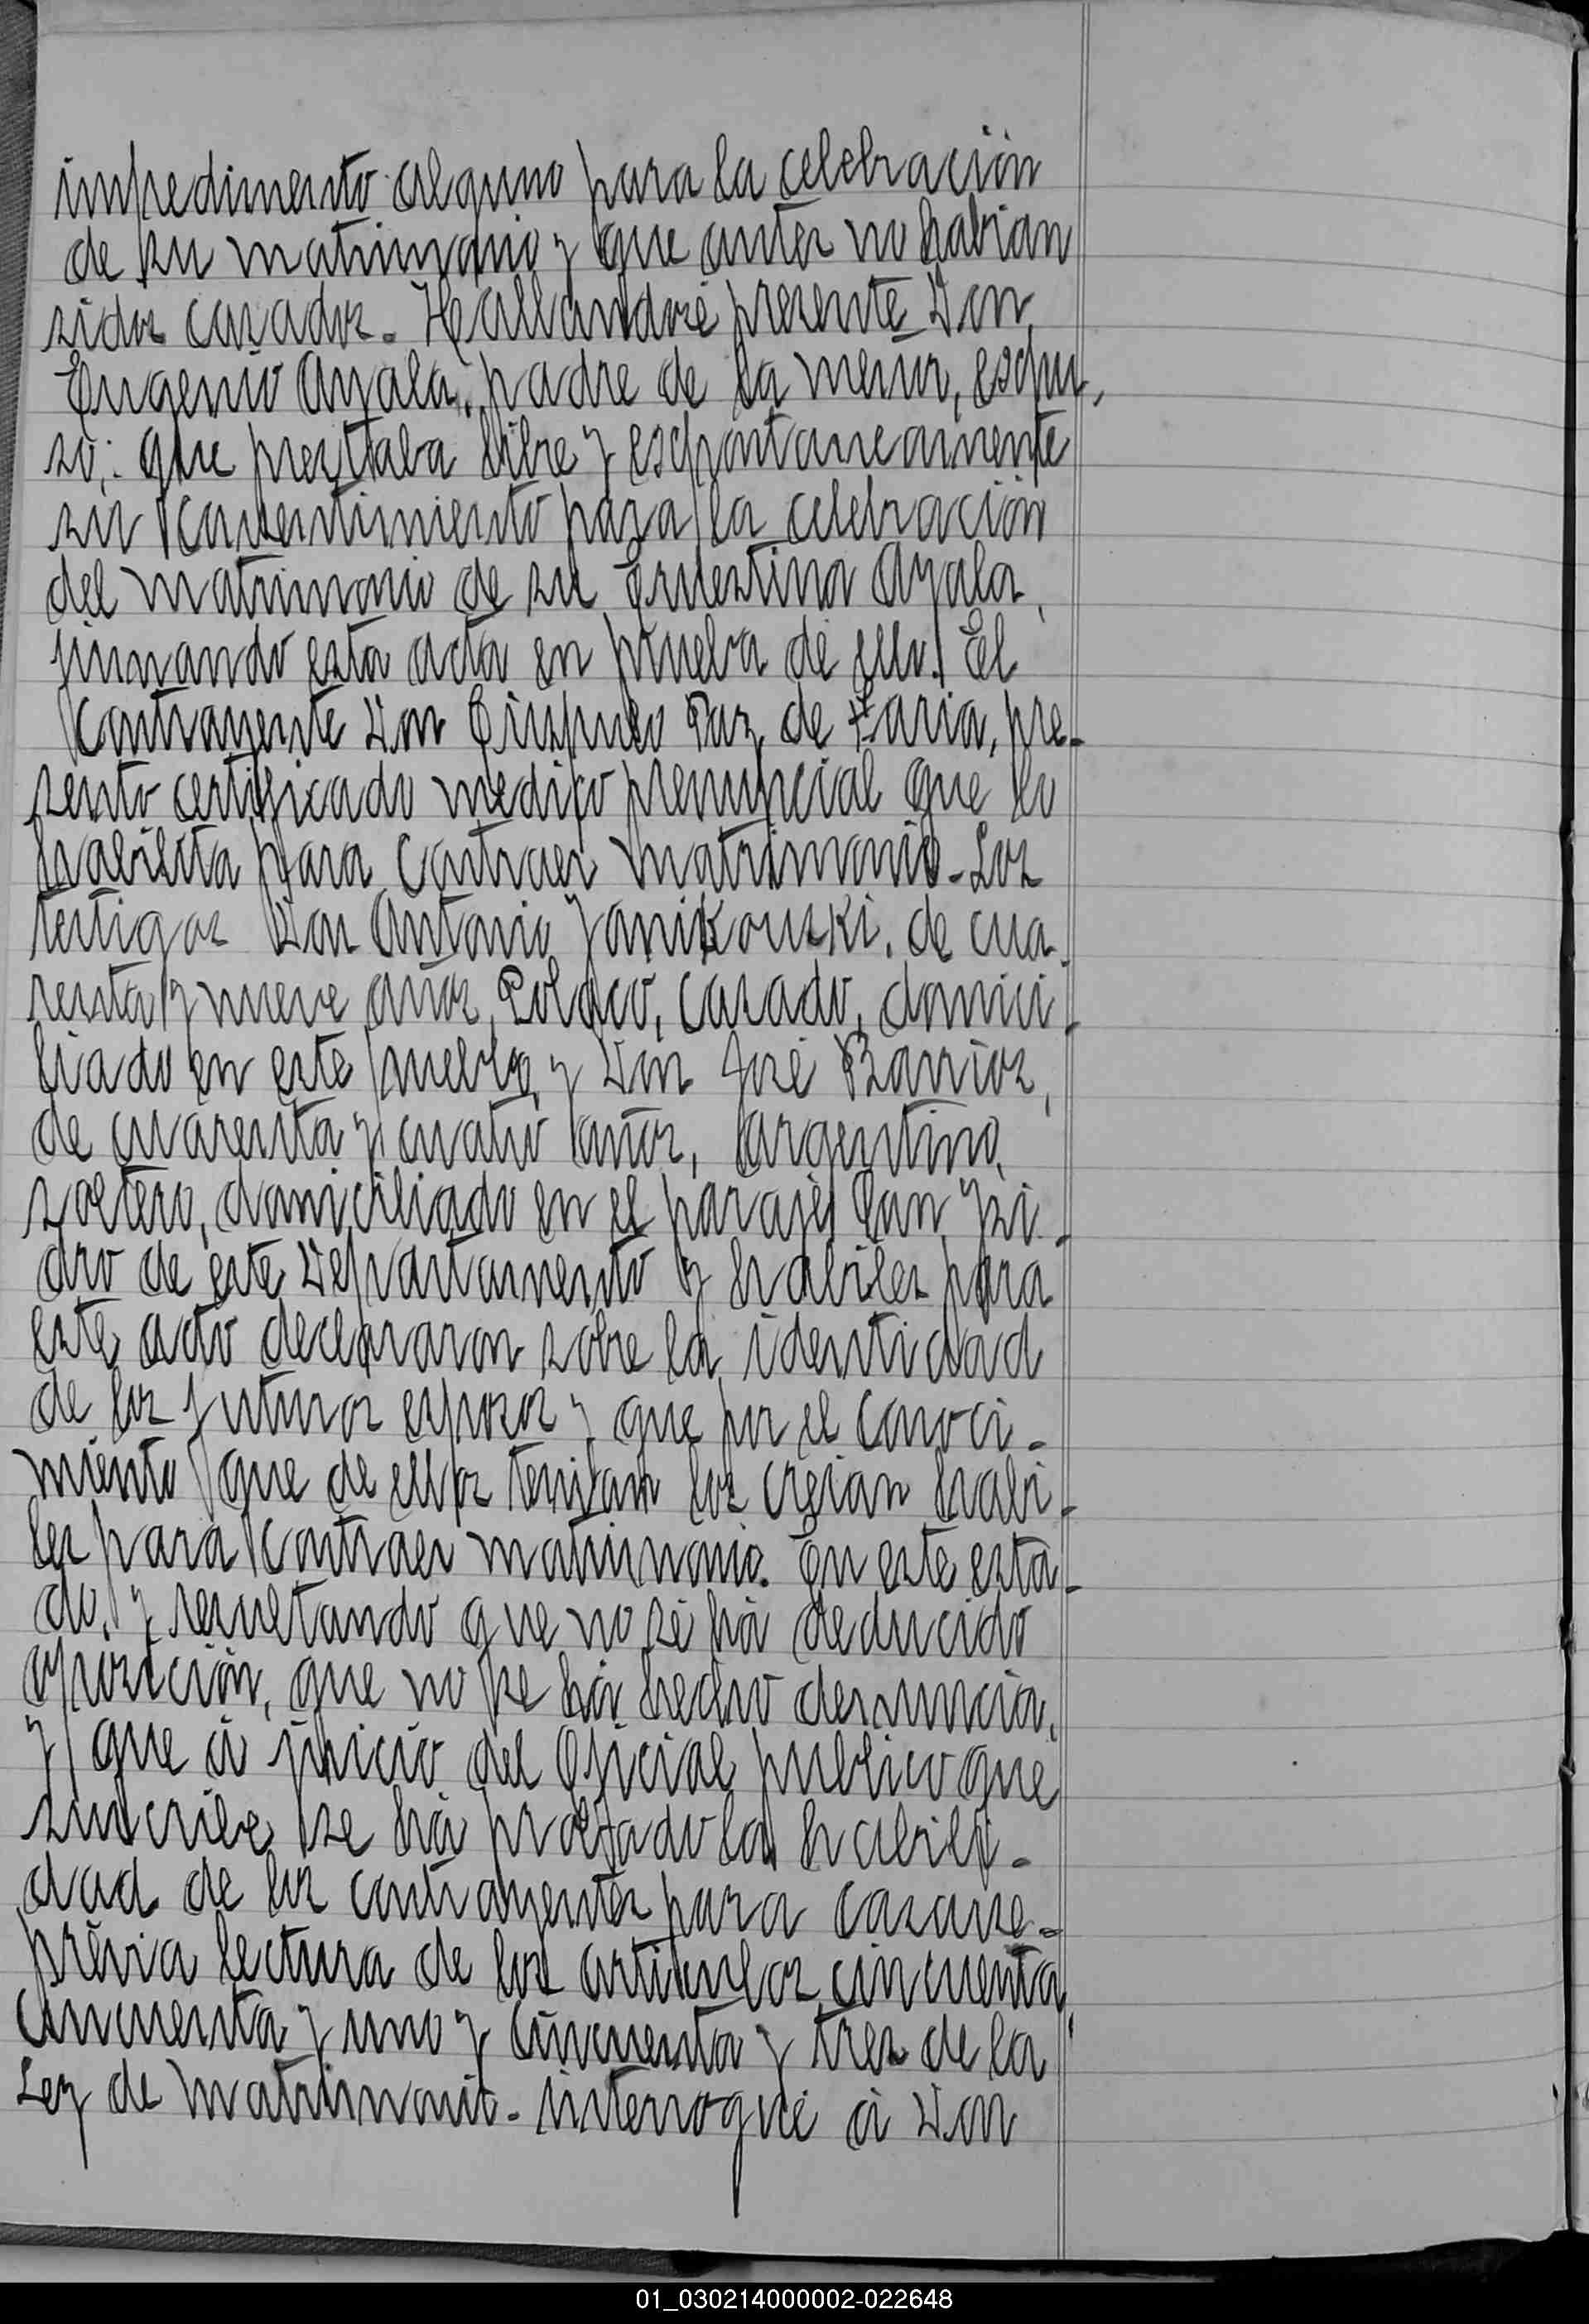 impedimento alguno para la celebración
de su matrimonio y que antes no habian
sidos casados. Hallandose presente Don
Eugenio Ayala, padre de la menor, espu-
so: que prestaba libre y espontaneamente
su consentimiento para la celebración
del matrimonio de su Ernestina Ayala,
firmando esta acta en prueba de ello. El
Contrayente Don Crispulo Paz de Faria, pre-
sento certificado medico prenupcial que lo
habilita para contraer matrimonio - Los
testigos Don Antonio Yanikouski, de cua-
renta y nueve años, Polaco, casado, domici-
liado en este pueblo, y Don José Barrios,
de cuarenta y cuatro años, argentino,
soltero, domiciliado en el paraje San Ysi-
dro de este Departamento y habiles para
este acto declararon sobre la identidad
de los futuros esposos y que por el conoci-
miento que de ellos tenian los creian habi-
les para contraer matrimonio. En este esta-
do, y resultando que no se há deducido
oposición, que no se há hecho denuncia,
y que á juicio del Oficial publico que
suscribe se há probado la habili-
dad de los contrayentes para casarse -
prévia lectura de los articulos cincuenta,
cincuenta y uno y cincuenta y tres de la
Ley de Matrimonio - interrogué á Don
01_030214000002-022648